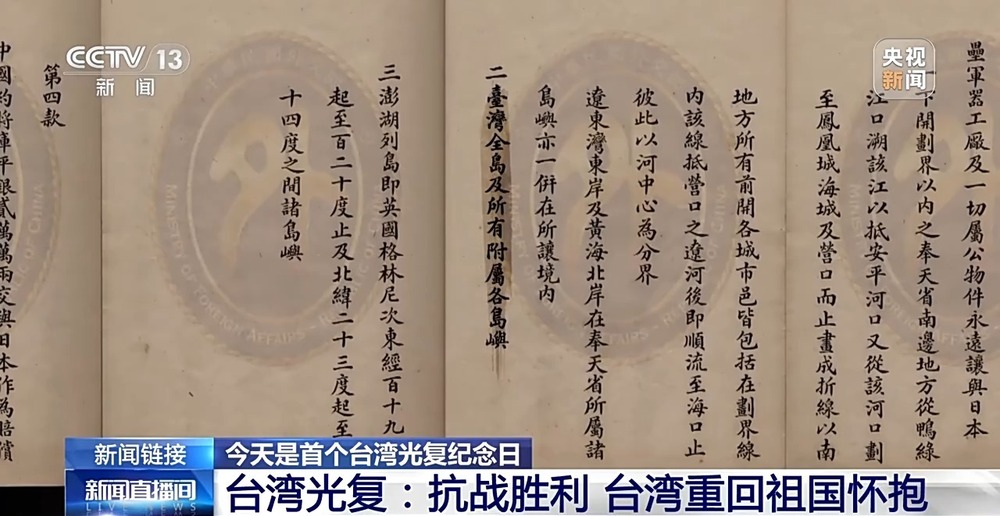 CCTV 13
新闻
央视
新闻
壘軍器工廠及一切屬公物件永遠讓與日本
下開劃界以內之奉天省南邊地方從鴨綠
江口溯該江以抵安平河口又從該河口劃
至鳳凰城海城及營口而止畫成折線以南
地方所有前開各城市邑皆包括在劃界線
內該線抵營口之遼河後即順流至海口止
彼此以河中心為分界
遼東灣東岸及黃海北岸在奉天省所屬諸
島嶼亦一併在所讓境內
二臺灣全島及所有附屬各島嶼
三澎湖列島即英國格林尼次東經百十九
起至百二十度止及北緯二十三度起至
十四度之間諸島嶼
第四款
中國約將庫平銀貳萬萬兩交與日本作為賠償
MINISTRY OF FOREIGN AFFAIRS
REPUBLIC OF CHINA
新闻链接
今天是首个台湾光复纪念日
新闻直播间
LIVE NEWS
台湾光复：抗战胜利 台湾重回祖国怀抱